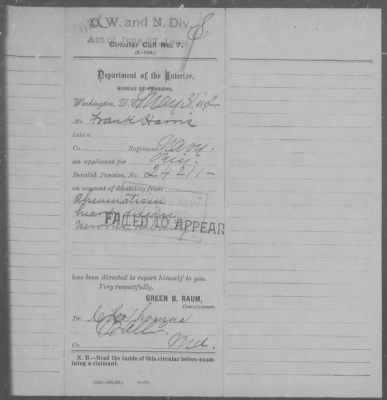 O. W. and N. Div.
Act of June 27, 1890
Circular Call No. 7.
Department of the Interior,
BUREAU OF PENSIONS,
Washington, D. C. May 31, 92
Mr. Frank Harris
late a
Co. Regiment Navy
an applicant for
Invalid Pension, No. 24211
on account of disability from
Rheumatism
heart disease
nervous
FAILED TO APPEAR
has been directed to report himself to you.
Very respectfully,
GREEN B. RAUM,
Commissioner.
Dr. Thomas
Balto.
Co. Md.
N. B.—Read the inside of this circular before exam-
ining a claimant.